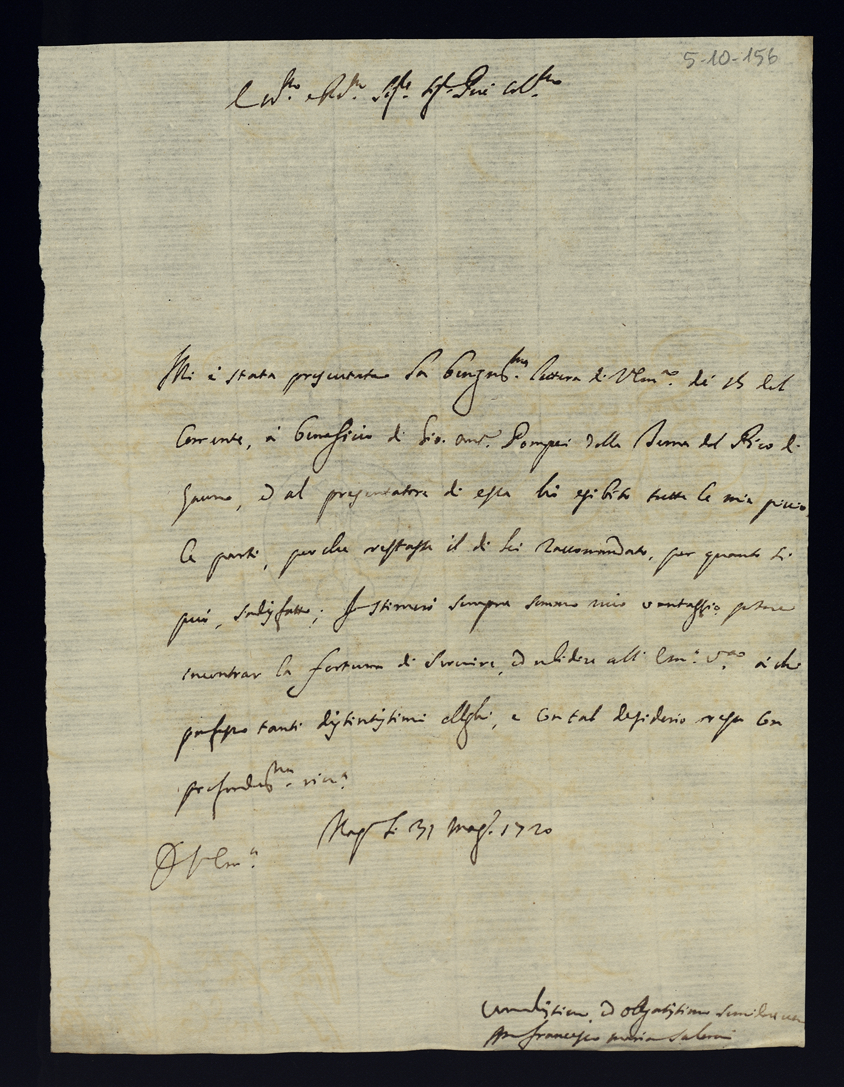 5-10-156
Em.mo e R.mo Sig.re Sig.r Pne Col.mo
Mi è stata presentata la benignis.ma lettera di V. Em.za de 15 del
Corrente, à beneficio di Gio. And.a Pompei della Terra del Pico di
Gaeta, ed al presentatore di essa hò esibito tutte le mie piccio
le parti, perche restasse il di lei raccomandato, per quanto si
può, sodisfatto; Io stimerò sempre sommo mio vantaggio potere
incontrar la fortuna di servire, ed ubidire all' Em.a V.ra à chi
professo tanti distintissimi oblighi, e con tal desiderio resto con
profondis.ma riv.a
Nap. li 31 Mag. 1720
D. V. Em.a
Umilissimo, ed obligatissimo servidore vero
Francesco Maria Salerni